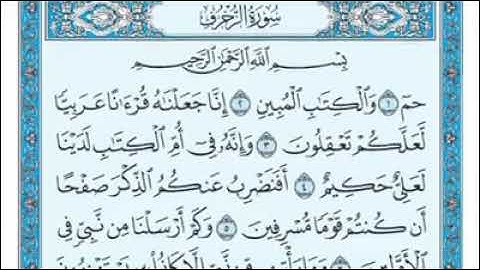 سُورَةُ الزُّخْرُفِ
بِسْمِ اللَّهِ الرَّحْمَٰنِ الرَّحِيمِ
حمٓ ١ وَالْكِتَابِ الْمُبِينِ ٢ إِنَّا جَعَلْنَاهُ قُرْءَانًا عَرَبِيًّا
لَعَلَّكُمْ تَعْقِلُونَ ٣ وَإِنَّهُ فِي أُمِّ الْكِتَابِ لَدَيْنَا
لَعَلِيٌّ حَكِيمٌ ٤ أَفَنَضْرِبُ عَنكُمُ الذِّكْرَ صَفْحًا
أَن كُنتُمْ قَوْمًا مُّسْرِفِينَ ٥ وَكَمْ أَرْسَلْنَا مِن نَّبِيٍّ فِي